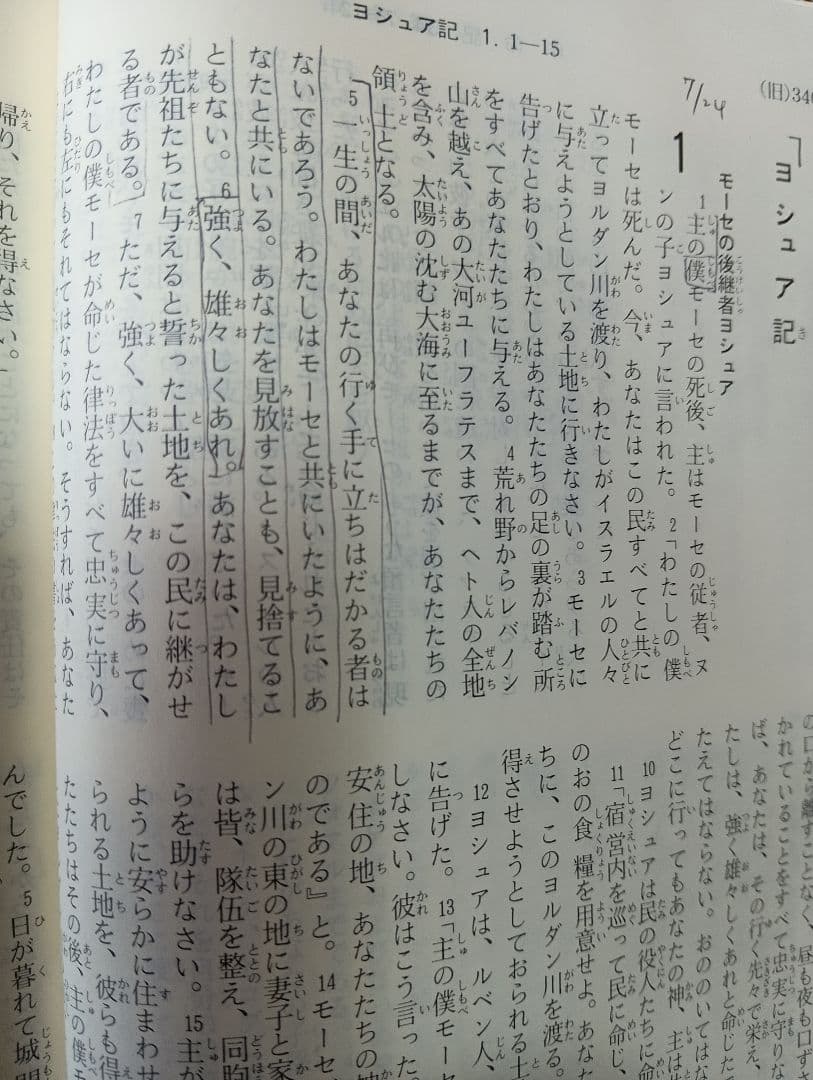 ヨシュア記 1.1—15
(旧)340
7/24
ヨシュア記
モーセの後継者ヨシュア
1
1主の僕モーセの死後、主はモーセの従者、ヌ
ンの子ヨシュアに言われた。2「わたしの僕
モーセは死んだ。今、あなたはこの民すべてと共に
立ってヨルダン川を渡り、わたしがイスラエルの人々
に与えようとしている土地に行きなさい。3モーセに
告げたとおり、わたしはあなたたちの足の裏が踏む所
をすべてあなたたちに与える。4荒れ野からレバノン
山を越え、あの大河ユーフラテスまで、ヘト人の全地
を含み、太陽の沈む大海に至るまでが、あなたたちの
領土となる。
5一生の間、あなたの行く手に立ちはだかる者は
ないであろう。わたしはモーセと共にいたように、あ
なたと共にいる。あなたを見放すことも、見捨てるこ
ともない。6強く、雄々しくあれ。あなたは、わたし
が先祖たちに与えると誓った土地を、この民に継がせ
る者である。7ただ、強く、大いに雄々しくあって、
わたしの僕モーセが命じた律法をすべて忠実に守り、
右にも左にもそれてはならない。そうすれば、あなた
の口から離すことなく、昼も夜も口ずさ
かれていることをすべて忠実に守りな
ば、あなたは、その行く先々で栄え、
たしは、強く雄々しくあれと命じた
たえてはならない。おののいてはな
どこに行ってもあなたの神、主は
10ヨシュアは民の役人たちに命
11「宿営内を巡って民に命じ、
のおの食糧を用意せよ。あな
ちに、このヨルダン川を渡る。
得させようとしておられる土
12ヨシュアは、ルベン人、
に告げた。13「主の僕モー
しなさい。彼はこう言った。
安住の地、あなたたちの
のである』と。14モーセ
ン川の東の地に妻子と家
は皆、隊伍を整え、同胞
らを助けなさい。15主が
ように安らかに住まわせ
られる土地を、彼らも得
たたちはその後、主の僕モ
帰り、それを得なさい。
んでした。5日が暮れて城